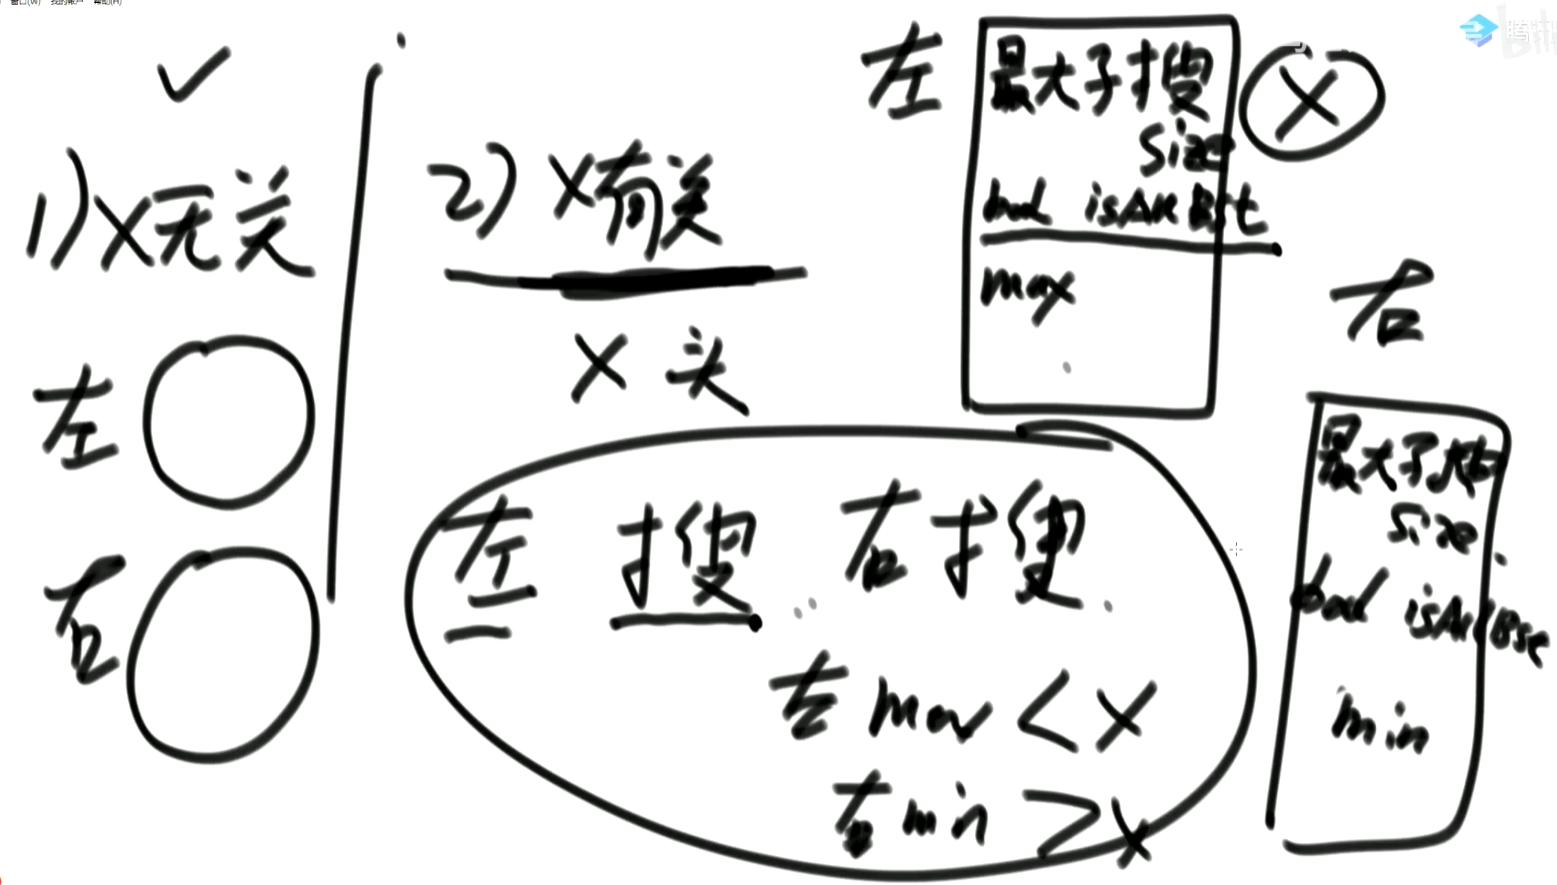 窗口(W) 我的帐户 帮助(H)
1) X无关
左
右
2) X有关
X 头
左 搜 右搜
左 max < X
右 min > X
左
最大子搜
size
bool isAllBst
max
X
右
最大子搜
size
bool isAllBst
min
腾讯
bili